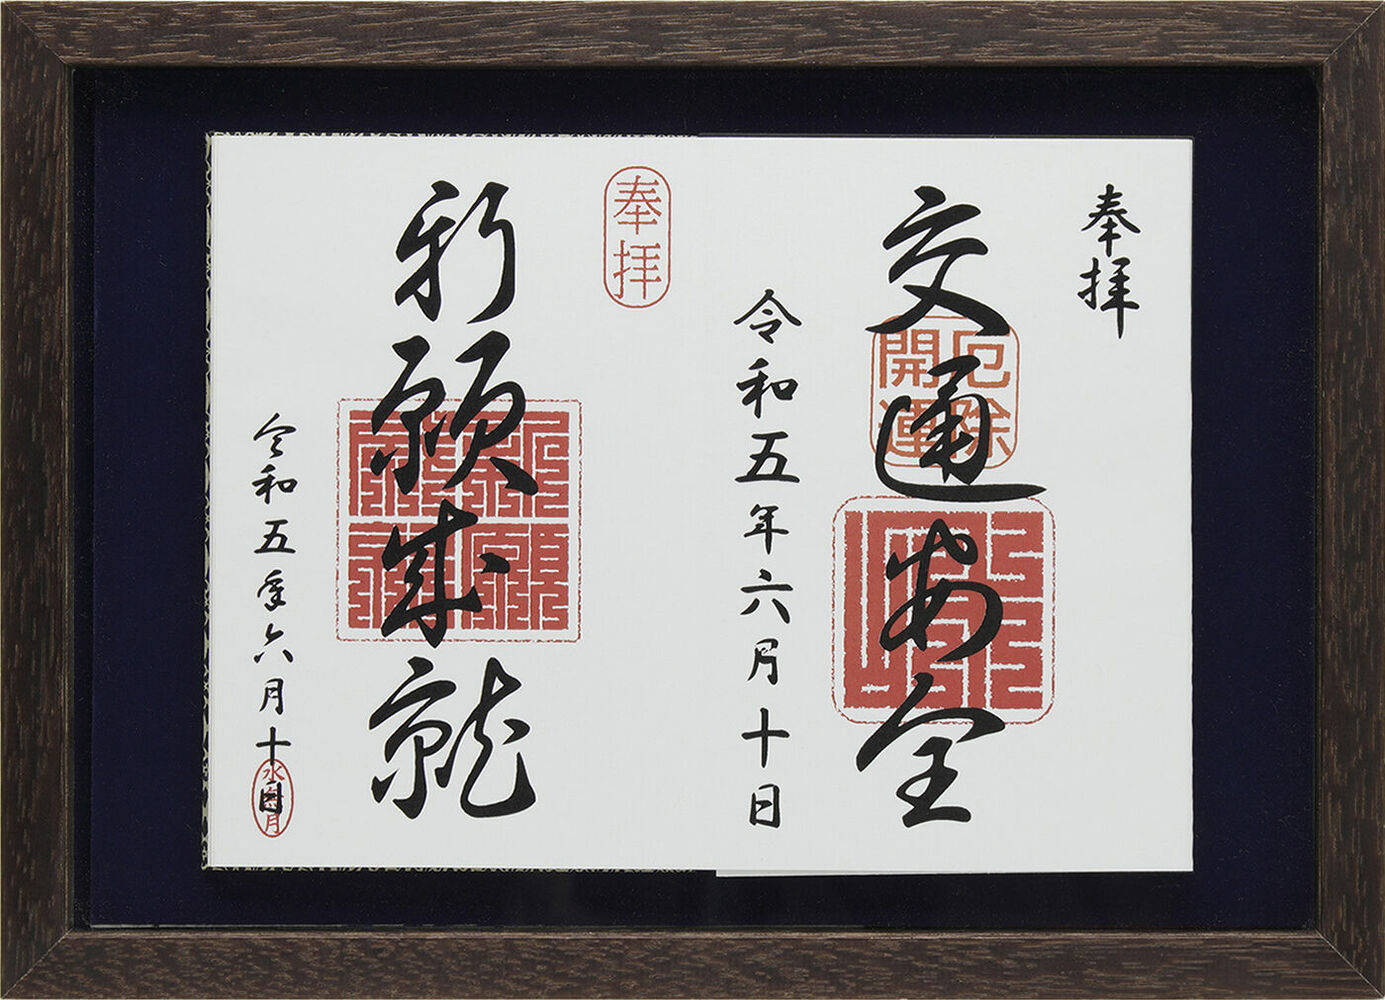 奉拝
交通安全
厄除
開運
令和五年六月十日
奉拝
新願成就
令和五年六月十一日
水無月